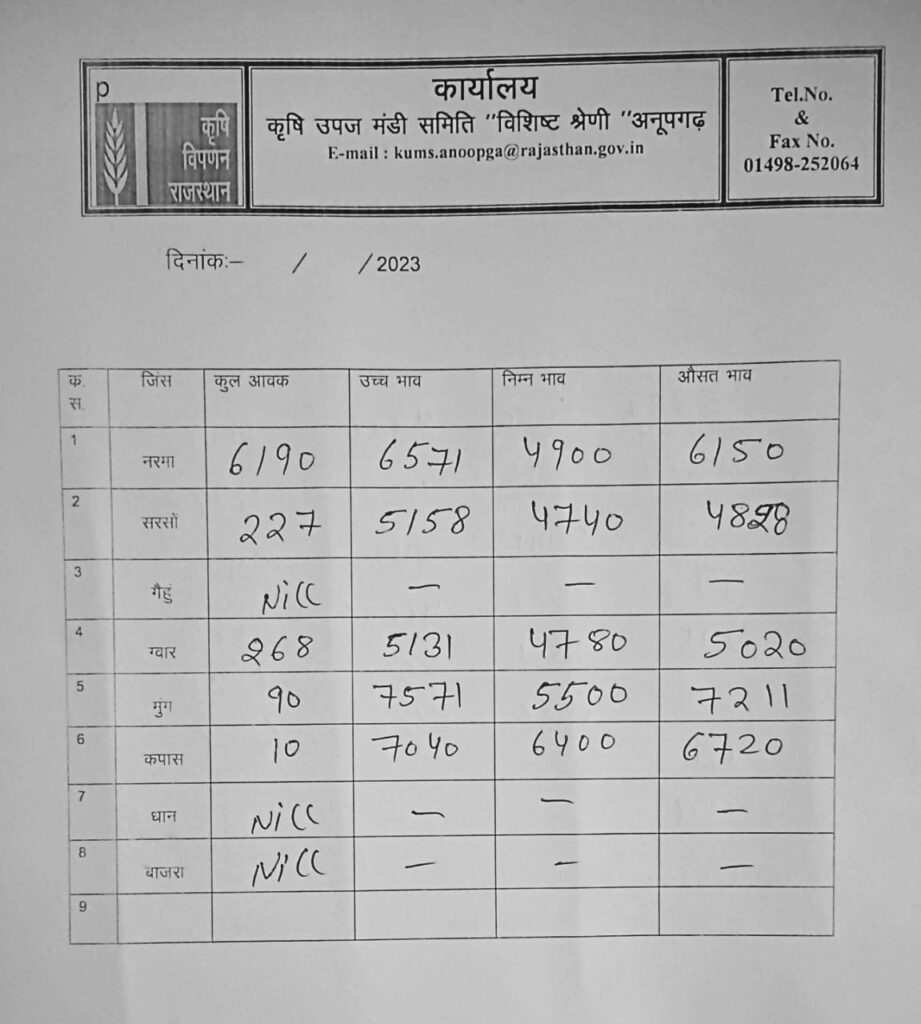 p
कृषि
विपणन
राजस्थान
कार्यालय
कृषि उपज मंडी समिति "विशिष्ट श्रेणी "अनूपगढ़
E-mail : kums.anoopga@rajasthan.gov.in
Tel.No.
&
Fax No.
01498-252064
दिनांक:– / / 2023
क. स. जिंस कुल आवक उच्च भाव निम्न भाव औसत भाव
1 नरमा 6190 6571 4900 6150
2 सरसों 227 5158 4740 4828
3 गैहुं Nill – – –
4 ग्वार 268 5131 4780 5020
5 मुंग 90 7571 5500 7211
6 कपास 10 7040 6400 6720
7 धान Nill – – –
8 बाजरा Nill – – –
9